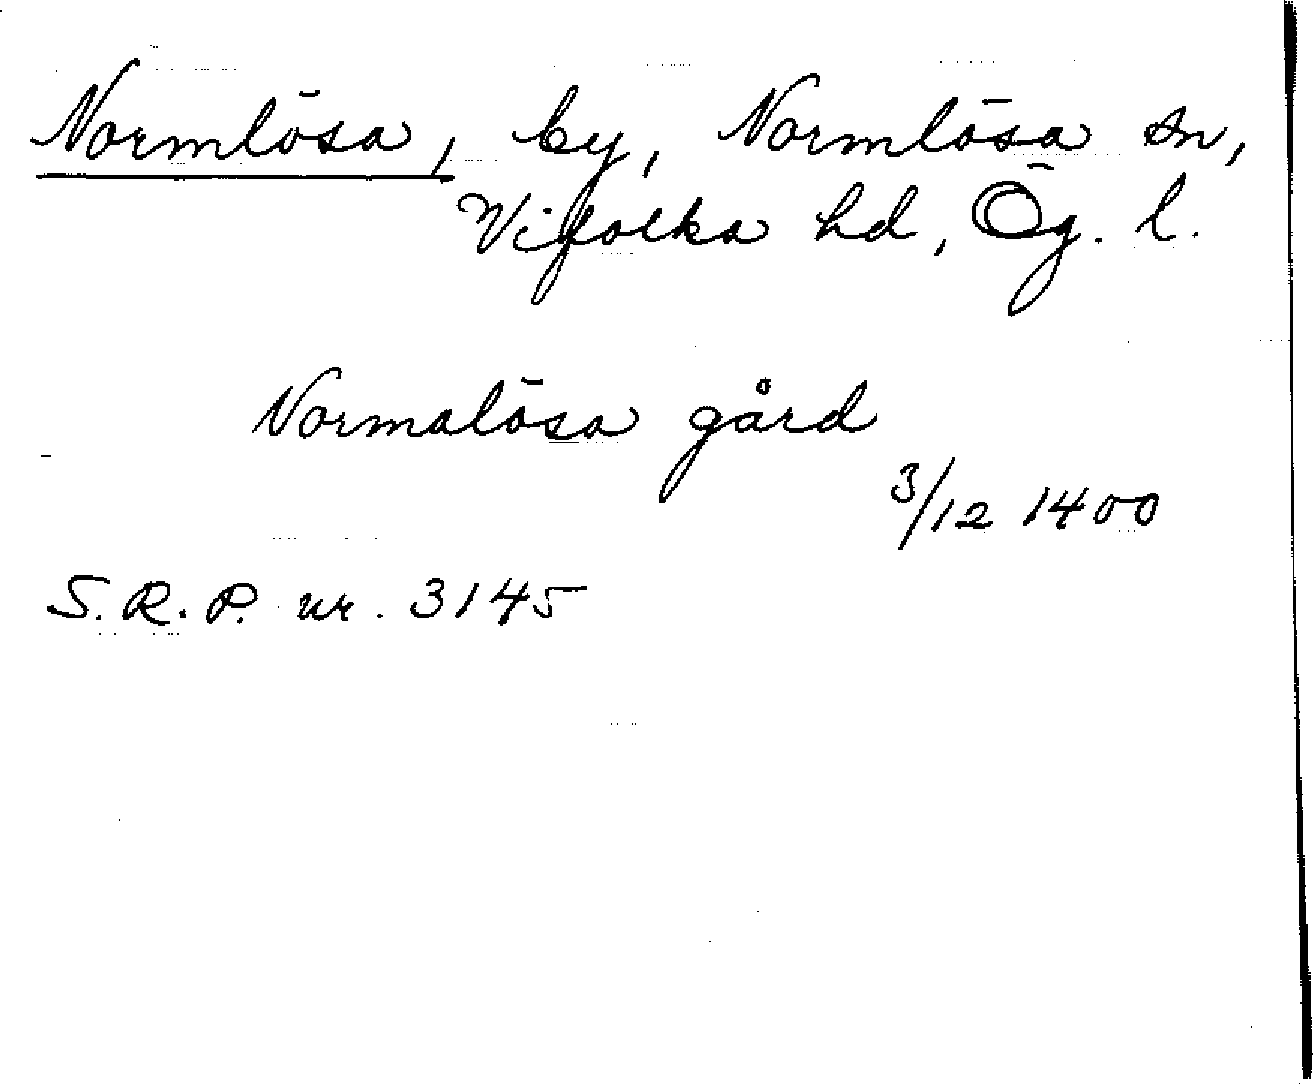 Normlösa, by, Normlösa sn,
Vifolka hd, Ög. l.
Normalösa gård
3/12 1400
S.R.P. nr. 3145